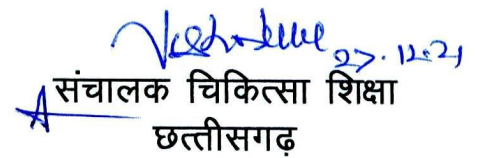 27.12.21
संचालक चिकित्सा शिक्षा
छत्तीसगढ़